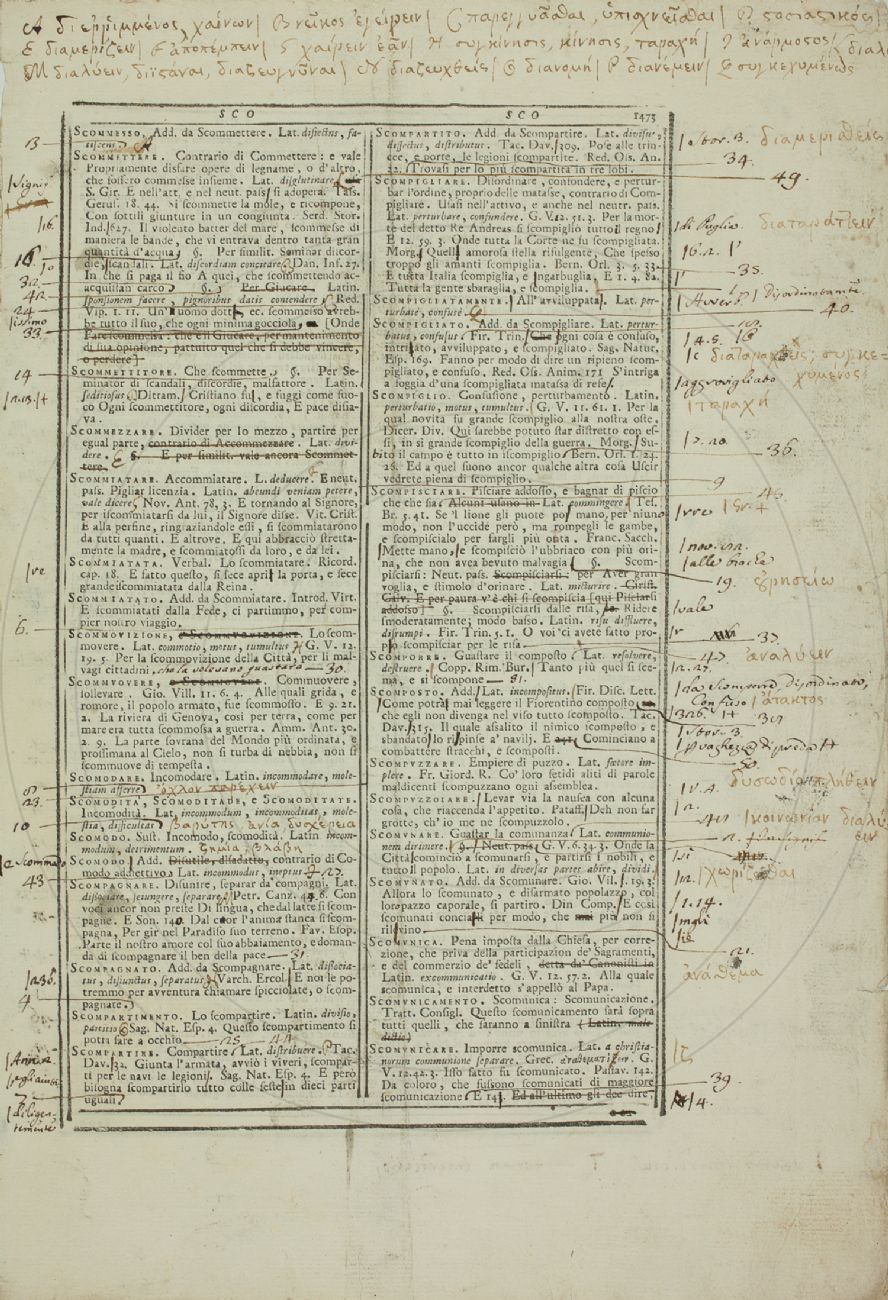 Α διεῤῥιμμένος, χαίνων | Β νεῖκος ἐγείρειν |
Ε διαμερίζειν | F ἀποπέμπειν | G χαίρειν ἐᾶν | H συγκίνησις, κίνησις, ταραχή |
M διαλύειν, διϊστάναι, διαζευγνῦναι | N διαζευχθείς | O διανομή | P διανέμειν | Q συγκεχυμένως
SCO SCO 1473
SCOMMESSO. Add. da Scommettere. Lat. disiectus, fa-
tiscens.
SCOMMETTERE. Contrario di Commettere: e vale
Propriamente disfare opere di legname, o d'altro,
che fossero commesse insieme. Lat. disglutinare,
S. Gir. E nell'att. e nel neut. pass. si adopera. Tass.
Gerus. 18. 44. Si scommette la mole, e ricompone,
Con sottili giunture in un congiunta. Serd. Stor.
Ind. 627. Il violento batter del mare, scommesse di
maniera le bande, che vi entrava dentro tanta gran
quantità d'acqua. §. Per similit. Seminar discor-
die, scandali. Lat. discordiam concitare. Dan. Inf. 27.
In che si paga il fio A quei, che scommettendo ac-
acquistan carco. §. Per Giucare. Latin.
sponsionem facere, pignoribus datis contendere. Red.
Vip. 1. 11. Un' uomo dott. ec. scommesso avreb-
be tutto il suo, che ogni minima gocciola, [Onde
Fare scommessa: che è il Giucare, per mantenimento
di sua opinione, pattuito quel che si debbe vincere,
o perdere]
SCOMMETTITORE. Che scommette. §. Per Se-
minator di scandali, discordie, malfattore. Latin.
seditiosus. Dittam. Cristiano fu, e fuggi come fuo-
co Ogni scommettitore, ogni discordia, E pace disia-
va.
SCOMMEZZARE. Divider per lo mezzo, partire per
egual parte, contrario di Accommezzare. Lat. divi-
dere. §. E per similit. vale ancora Scommet-
tere.
SCOMMIATARE. Accommiatare. L. deducere. E neut.
pass. Pigliar licenzia. Latin. abeundi veniam petere,
vale dicere. Nov. Ant. 78. 3. E tornando al Signore,
per iscommiatarsi da lui, il Signore disse. Vit. Crist.
E alla perfine, ringraziandole essi, si scommiatarono
da tutti quanti. E altrove. E quì abbracciò stretta-
mente la madre, e scommiatossi da loro, e da lei.
SCOMMIATATA. Verbal. Lo scommiatare. Ricord.
cap. 18. E fatto questo, si fece aprir la porta, e fece
grande scommiatata dalla Reina.
SCOMMIATATO. Add. da Scommiatare. Introd. Virt.
E scommiatati dalla Fede, ci partimmo, per com-
pier nostro viaggio.
SCOMMOVIZIONE, e SCOMMOVIZIONE. Lo scom-
movere. Lat. commotio, motus, tumultus. G. V. 12.
19. 5. Per la scommovizione della Città, per li mal-
vagi cittadini.
SCOMMUOVERE, e SCOMMOVERE. Commuovere,
sollevare. Gio. Vill. 11. 6. 4. Alle quali grida, e
romore, il popolo armato, fue scommosso. E 9. 21.
2. La riviera di Genova, così per terra, come per
mare era tutta scommossa a guerra. Amm. Ant. 30.
2. 9. La parte sovrana del Mondo più ordinata, e
prossimana al Cielo, non si turba di nebbia, non si
scommuove di tempesta.
SCOMODARE. Incomodare. Latin. incommodare, mole-
stiam afferre. ὄχλον παρέχειν
SCOMODITÀ, SCOMODITADE, e SCOMODITATE.
Incomodità. Lat. incommodum, incommoditas, mole-
stia, difficultas. βαρύτης, ἀνία, δυσχέρεια
SCOMODO. Sust. Incomodo, scomodità. Latin incom-
modum, detrimentum. ζημία, βλάβη
SCOMODO. Add. Disutile, disadatto, contrario di Co-
modo addiettivo. Lat. incommodus, ineptus. 27.
SCOMPAGNARE. Disunire, separar da' compagni. Lat.
dissociare, seiungere, separare. Petr. Canz. 48. 8. Con
voci ancor non preste Di lingua, che dal latte si scom-
pagne. E Son. 140. Dal cuor l'anima stanca si scom-
pagna, Per gir nel Paradiso suo terreno. Fav. Esop.
Parte il nostro amore col suo abbaiamento, e doman-
da di scompagnare il ben della pace 31.
SCOMPAGNATO. Add. da Scompagnare. Lat. dissocia-
tus, disiunctus, separatus. Varch. Ercol. E noi le po-
tremmo per avventura chiamare spicciolate, o scom-
pagnate.
SCOMPARTIMENTO. Lo scompartire. Latin. divisio,
partitio. Sag. Nat. Esp. 4. Questo scompartimento si
potrà fare a occhio. 25. 44.
SCOMPARTIRE. Compartire. Lat. distribuere. Tac.
Dav. 32. Giunta l'armata, avviò i viveri, scompar-
tì per le navi le legioni. Sag. Nat. Esp. 4. E però
bisogna scompartirlo tutto colle seste in dieci parti
uguali.
SCOMPARTITO. Add. da Scompartire. Lat. divisus,
dissectus, distributus. Tac. Dav. 309. Pose alle trin-
cee, e porte, le legioni scompartite. Red. Oss. An.
22. Trovasi per lo più scompartita in tre lobi.
SCOMPIGLIARE. Disordinare, confondere, e pertur-
bar l'ordine, proprio delle matasse, contrario di Com-
pigliare. Usasi nell'attivo, e anche nel neutr. pass.
Lat. perturbare, confundere. G. V. 12. 51. 3. Per la mor-
te del detto Re Andreas si scompigliò tutto il regno.
E 12. 59. 3. Onde tutta la Corte ne fu scompigliata.
Morg. Quell' amorosa stella risulgente, Che spesso
troppo gli amanti scompiglia. Bern. Orl. 3. 5. 33.
E tutta Italia scompiglia, e 'ngarbuglia. E 1. 4. 82.
Tutta la gente sbaraglia, e scompiglia.
SCOMPIGLIATAMENTE. All' avviluppata. Lat. per-
turbate, confuse.
SCOMPIGLIATO. Add. da Scompigliare. Lat. pertur-
batus, confusus. Fir. Trin. Che ogni cosa è confuso,
intrigato, avviluppato, e scompigliato. Sag. Natur.
Esp. 169. Fanno per modo di dire un ripieno scom-
pigliato, e confuso. Red. Oss. Anim. 171 S'intriga
a foggia d'una scompigliata matassa di refe.
SCOMPIGLIO. Confusione, perturbamento. Latin.
perturbatio, motus, tumultus. G. V. 11. 61. 1. Per la
qual novità fu grande scompiglio alla nostra oste.
Dicer. Div. Quì sarebbe potuto star distretto con es-
si, in sì grande scompiglio della guerra. Morg. Su-
bito il campo è tutto in iscompiglio. Bern. Orl. 1. 24.
26. Ed a quel suono ancor qualche altra cosa Uscir
vedrete piena di scompiglio.
SCOMPISCIARE. Pisciare addosso, e bagnar di piscio
che che sia. Alcuni usano in Lat. commingere. Tes.
Br. 5. 41. Se 'l lione gli puote por mano, per niuno
modo, non l'uccide però, ma rompegli le gambe,
e scompiscialo per fargli più onta. Franc. Sacch.
Mette mano, le scompisciò l'ubbriaco con più ori-
na, che non avea bevuto malvagia. §. Scom-
pisciarsi: Neut. pass. Scompisciarsi: per Aver gran
voglia, e stimolo d'orinare. Lat. micturire. Grist.
Calv. E per paura v'è chi si scompiscia [qui Pisciarsi
addosso] §. Scompisciarsi dalle risa, Ridere
smoderatamente; modo basso. Latin. risu diffluere,
dirumpi. Fir. Trin. 5. 1. O voi 'ci avete fatto pro-
prio scompisciar per le risa
SCOMPORRE. Guastare il composto. Lat. resolvere,
destruere. Copp. Rim. Bur. Tanto più quel si sce-
ma, e si scompone 81.
SCOMPOSTO. Add. Lat. incompositus. Fir. Disc. Lett.
Come potrà mai leggere il Fiorentino composto,
che egli non divenga nel viso tutto scomposto. Tac.
Dav. 315. Il quale assalito il nimico scomposto, e
sbandato lo rispinse a' navilj. E Cominciano a
combattere stracchi, e scomposti.
SCOMPUZZARE. Empiere di puzzo. Lat. fœtore im-
plere. Fr. Giord. R. Co' loro fetidi aliti di parole
maldicenti scompuzzano ogni assemblea.
SCOMPUZZOLARE. Levar via la nausea con alcuna
cosa, che riaccenda l'appetito. Pataff. Deh non far
grotte, ch' io me ne scompuzzolo.
SCOMUNARE. Guastar la comunanza. Lat. communio-
nem dirimere. §. Neut. pass. G. V. 6. 34. 3. Onde la
Città cominciò a scomunarsi, e partirsi i nobili, e
tutto il popolo. Lat. in diversas partes abire, dividi.
SCOMUNATO. Add. da Scomunare. Gio. Vill. 19. 3.
Allora lo scomunato, e disarmato popolazzo, col
loro pazzo caporale, si partiro. Din Comp. E così
scomunati conciaſli per modo, che mai più non si
rilevino
SCOMUNICA. Pena imposta dalla Chiesa, per corre-
zione, che priva della participazion de' Sagramenti,
e del commerzio de' fedeli, detta da' Canonisti in
Latin. excommunicatio. G. V. 12. 57. 2. Alla quale
scomunica, e interdetto s'appellò al Papa.
SCOMUNICAMENTO. Scomunica: Scomunicazione.
Tratt. Consigl. Questo scomunicamento sarà sopra
tutti quelli, che saranno a sinistra (Latin. male-
dictio)
SCOMUNICARE. Imporre scomunica. Lat. a christia-
norum communione separare. Grec. ἀναθεματίζειν. G.
V. 12. 42. 3. Isso fatto fu scomunicato. Passav. 142.
Da coloro, che fussono scomunicati di maggiore
scomunicazione. E 143. Ed all'ultimo gli dee dire,
13
16
10
32.
42.
24
33
14
ve
6.
8
23.
10
43
4.
7
diligen-
temente
Stor. 3. διαμερισθείς
34.
49.
di Puglia διαταράττειν
16. 2.
35.
Avverb. disordinatamente.
40.
4. 5. 16
aggrovigliato
ταραχή
36.
9
46.
19.
vale
37.
47. ἀναλύειν
ἄτακτος
326.
Stor. 3.
κοινωνίαν διαλύ-
ειν
50.
χωρίζεσθαι
1. 14.
21.
ἀνάθεμα
39
14.